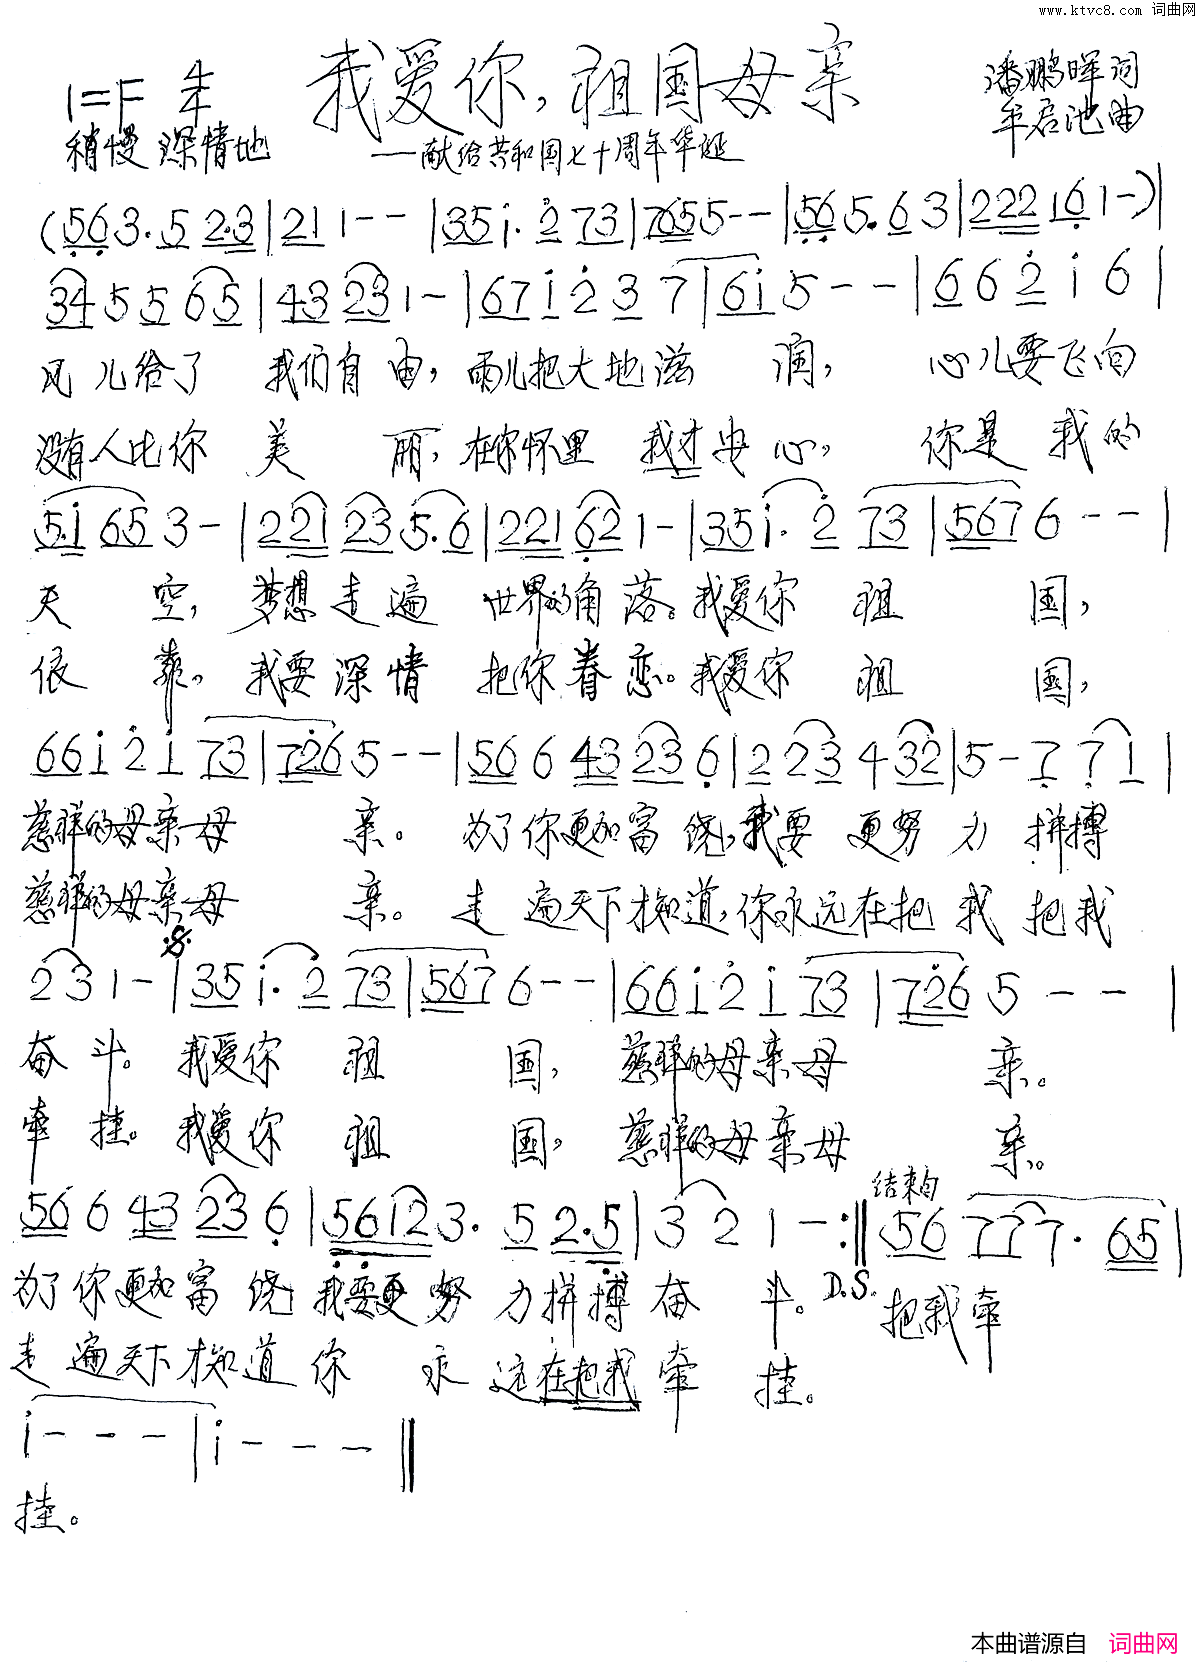 www.ktvc8.com 词曲网
1=F 4/4 我爱你，祖国母亲 潘鹏晖词
稍慢 深情地 ——献给共和国七十周年华诞 牟启池曲
(5 6 3. 5 2.3 | 2 1 1 - - | 3 5 i. 2 7 3 | 7 6 5 5 - - | 5 6 5. 6 3 | 2 2 2 1 6 1 - ) |
3 4 5 5 6 5 | 4 3 2 3 1 - | 6 7 i 2 3 7 | 6 i 5 - - | 6 6 2 i 6 |
风儿给了 我们自由，雨儿把大地滋 润， 心儿要飞向
没有人比你 美 丽，在你怀里 我才安心， 你是 我的
5. i 6 5 3 - | 2 2 1 2 3 5. 6 | 2 2 1 6 2 1 - | 3 5 i. 2 7 3 | 5 6 7 6 - - |
天 空，梦想走遍 世界的角落。我爱你 祖 国，
依 靠，我要深情 把你眷恋。我爱你 祖 国，
6 6 i 2 i 7 3 | 7 2 6 5 - - | 5 6 6 4 3 2 3 6 | 2 2 3 4 3 2 | 5 - 7 7 1 |
慈祥的母亲母 亲。 为了你更加富饶，我要 更努 力 拼搏
慈祥的母亲母 亲。 走 遍天下才知道，你永远在把 我 把我
2 3 1 - | 3 5 i. 2 7 3 | 5 6 7 6 - - | 6 6 i 2 i 7 3 | 7 2 6 5 - - |
奋 斗。我爱你 祖 国， 慈祥的母亲母 亲。
牵 挂。我爱你 祖 国， 慈祥的母亲母 亲。
结束句
5 6 6 4 3 2 3 6 | 5 6 1 2 3. 5 2.5 | 3 2 1 - :|| 5 6 7 7 7. 6 5 |
为了你更加富 饶 我要更努 力拼搏奋 斗。 D.S. 把我牵
走 遍天下才知道 你 永 远在把我 牵 挂。
i - - - | i - - - ||
挂。
本曲谱源自 词曲网